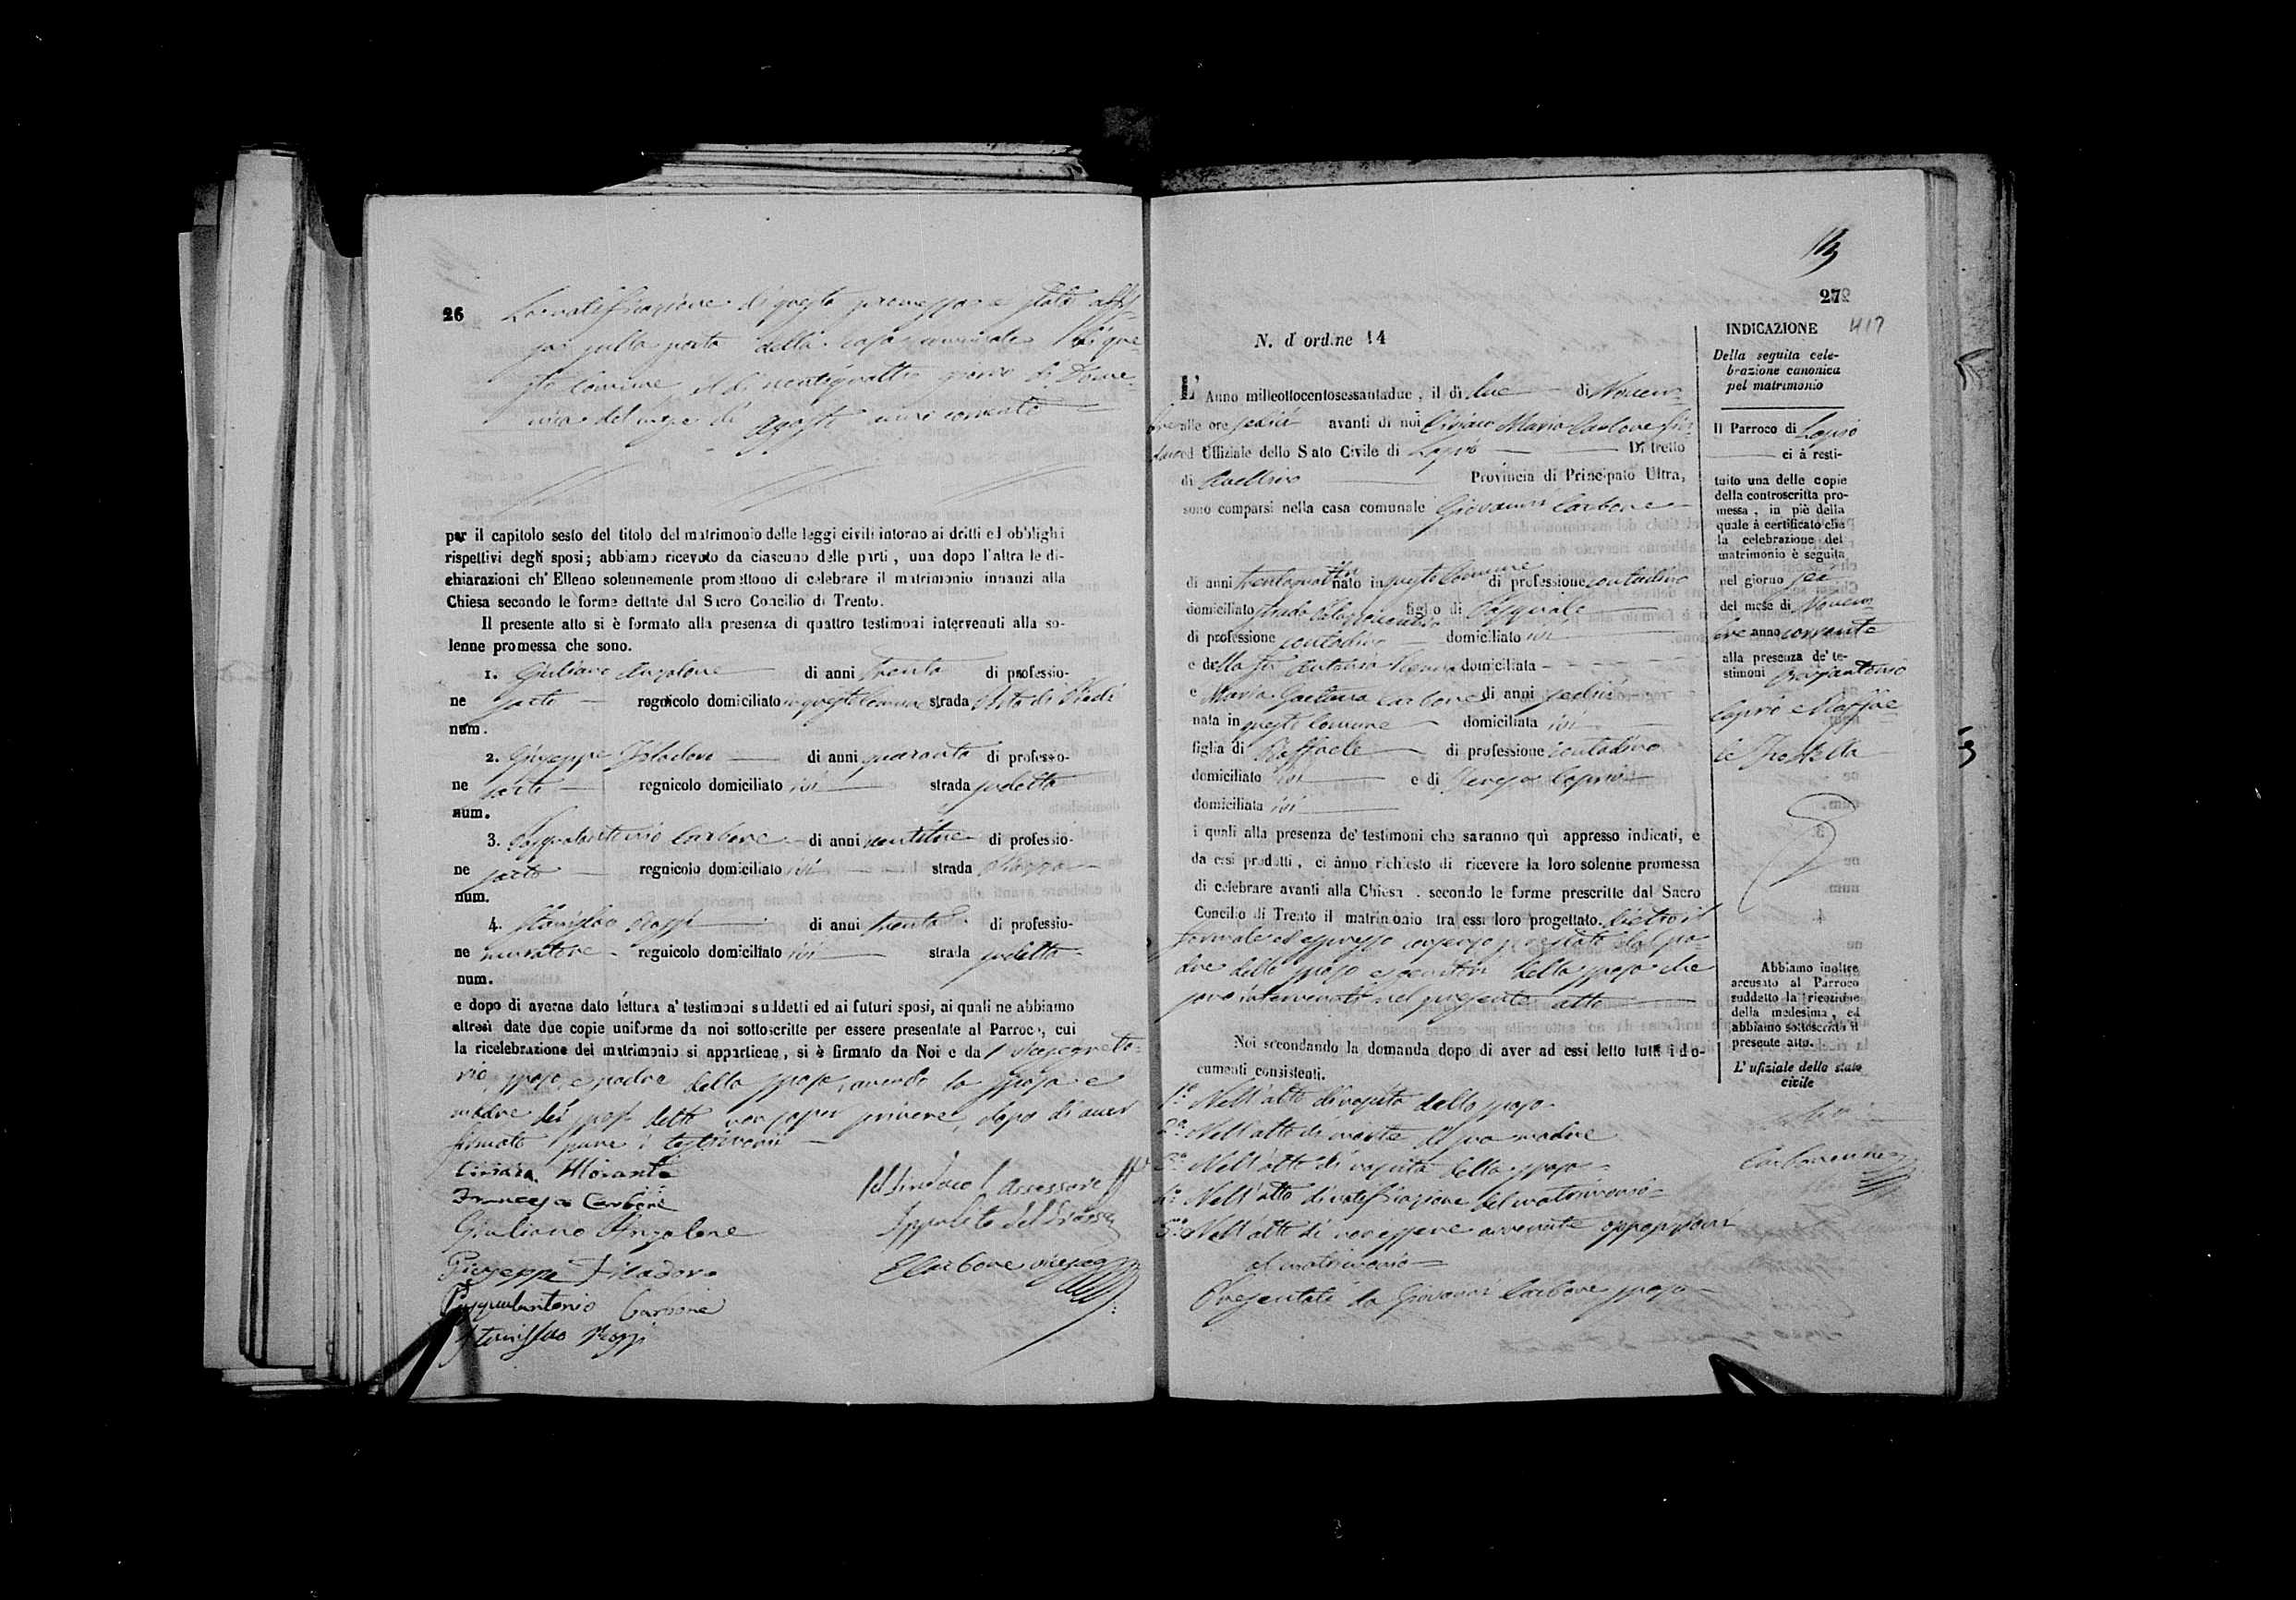 26
di questa promessa è stata
sulla porta della casa comunale di que-
sto Comune il dì ventiquattro giorno di Dome-
nica del mese di Agosto anno corrente
per il capitolo sesto del titolo del matrimonio delle leggi civili intorno ai dritti ed obblighi
rispettivi degli sposi; abbiamo ricevuto da ciascuno delle parti, una dopo l'altra le di-
chiarazioni ch' Elleno solennemente promettono di celebrare il matrimonio innanzi alla
Chiesa secondo le forme dettate dal Sacro Concilio di Trento.
Il presente atto si è formato alla presenza di quattro testimoni intervenuti alla so-
lenne promessa che sono.
1. Giuliano Anzalone di anni trenta di professio-
ne sarto regnicolo domiciliato in questo Comune strada
num.
2. Giuseppe di anni quaranta di professio-
ne sarto regnicolo domiciliato ivi strada sudetta
num.
3. Pasqualantonio Carbone di anni di professio-
ne sarto regnicolo domiciliato ivi strada
num.
4. Stanislao di anni trenta di professio-
ne muratore regnicolo domiciliato ivi strada sudetta
num.
e dopo di averne dato lettura a' testimoni suddetti ed ai futuri sposi, ai quali ne abbiamo
altresì date due copie uniforme da noi sottoscritte per essere presentate al Parroco, cui
la ricelebrazione del matrimonio si appartiene, si è firmato da Noi e da
sposo, e padre della sposa, avendo la sposa e
madre dei sposi detto non saper scrivere, dopo di aver
firmato pure i testimonii
Morante
Francesco Carbone
Giuliano Anzalone
Giuseppe
Pasqualantonio Carbone
Stanislao
Pel Sindaco l'Assessore
Ippolito
Carbone
27
417
N. d'ordine 14
L' Anno milleottocentosessantadue, il dì due di Novem-
bre alle ore sedici avanti di noi Ciriaco Maria Carbone Sin-
daco ed Uffiziale dello Stato Civile di Lapio Distretto
di Avellino Provincia di Principato Ultra,
sono comparsi nella casa comunale Giovanni Carbone
di anni trentaquattro nato in questo Comune di professione contadino
domiciliato strada figlio di Pasquale
di professione contadino domiciliato ivi
e della fu Antonia domiciliata
e Maria Gaetana Carbone di anni sedici
nata in questo Comune domiciliata ivi
figlia di Raffaele di professione contadino
domiciliato ivi e di Teresa Caprio
domiciliata ivi
i quali alla presenza de' testimoni che saranno quì appresso indicati, e
da essi prodotti, ci ànno richiesto di ricevere la loro solenne promessa
di celebrare avanti alla Chiesa, secondo le forme prescritte dal Sacro
Concilio di Trento il matrimonio tra essi loro progettato. Dietro il
formale ed espresso consenso prestato dal pa-
dre dello sposo e genitori della sposa che
sono intervenuti nel presente atto
Noi secondando la domanda dopo di aver ad essi letto tutti i do-
cumenti consistenti.
1° Nell'atto di nascita dello sposo
2° Nell'atto di morte di sua madre
3° Nell'atto di nascita della sposa
4° Nell'atto di notificazione del matrimonio
5° Nell'atto di non essere avvenute opposizioni
al matrimonio
Presentati da Giovanni Carbone sposo
INDICAZIONE
Della seguita cele-
brazione canonica
pel matrimonio
Il Parroco di Lapio
ci à resti-
tuito una delle copie
della controscritta pro-
messa, in piè della
quale à certificato che
la celebrazione del
matrimonio è seguita
nel giorno sei
del mese di Novem-
bre anno corrente
alla presenza de' te-
stimoni
Caprio e Raffae-
le
Abbiamo inoltre
accusato al Parroco
suddetto la ricezione
della medesima, ed
abbiamo sottoscritto il
presente atto.
L' ufiziale dello stato
civile
Carbone